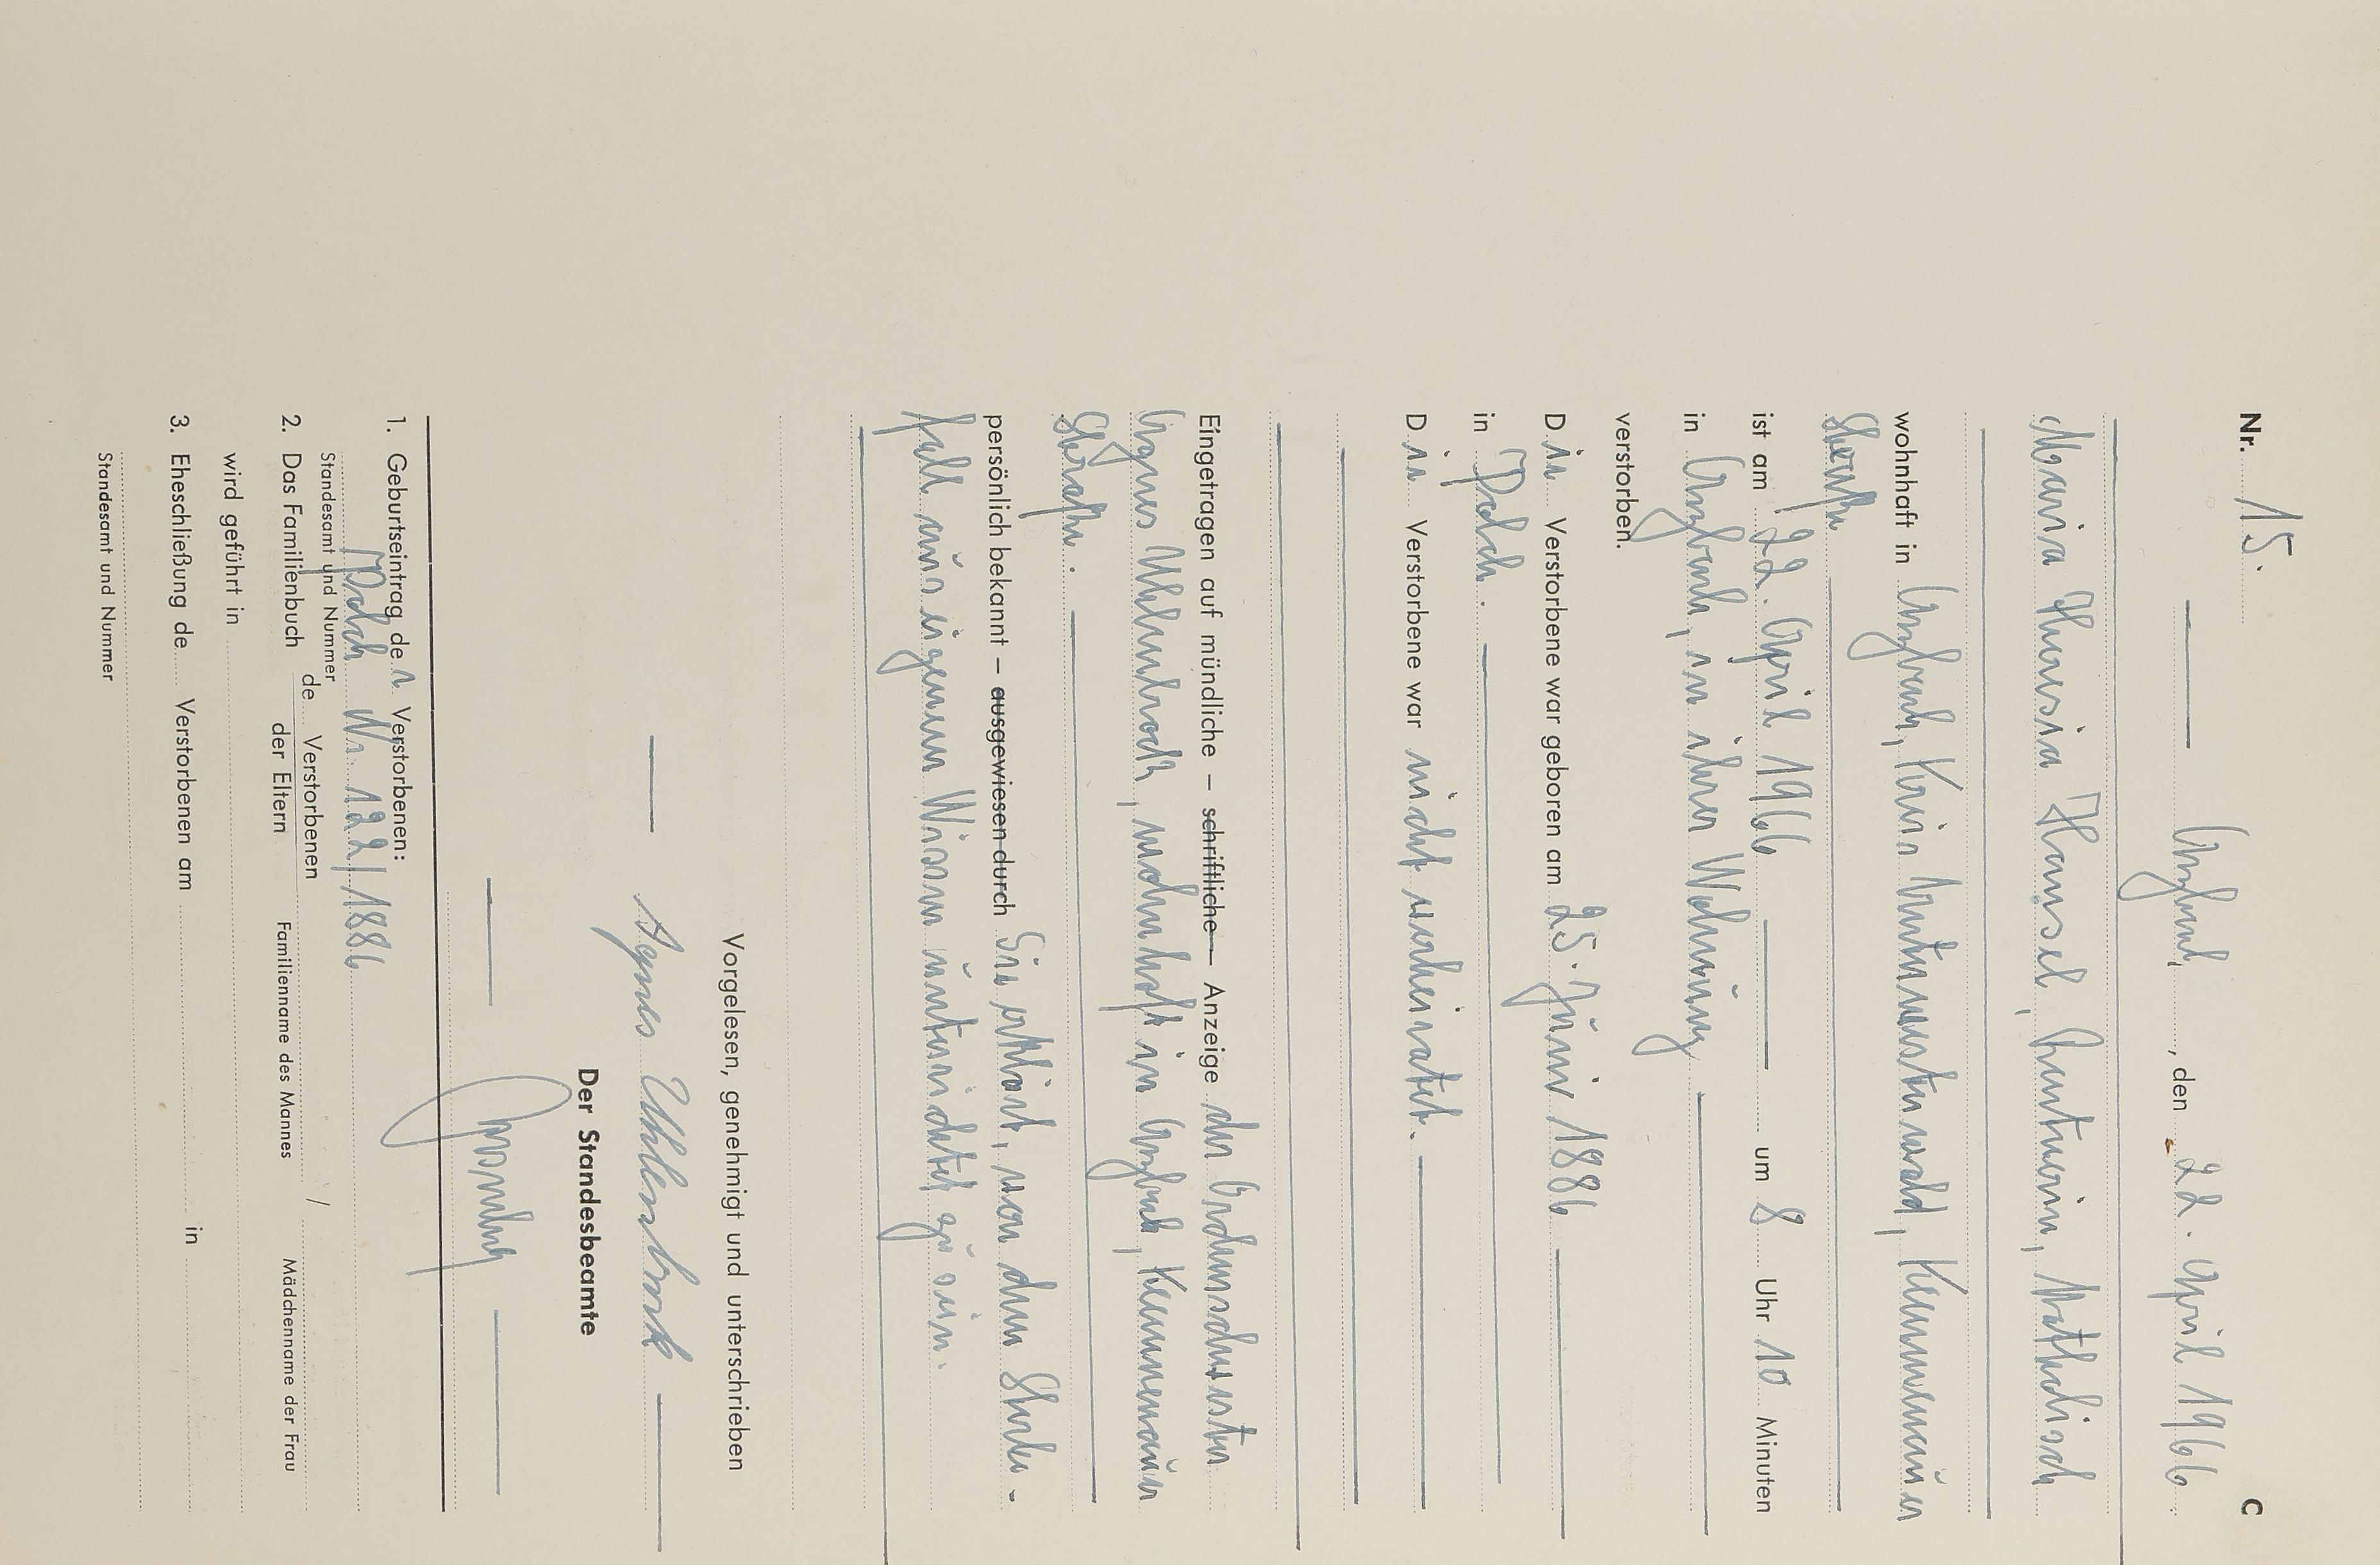 Nr. 15. C
Anzbach, den 22. April 1966.
Maria Theresia Hansel, Rentnerin, katholisch
wohnhaft in
Straße
ist am 22. April 1966 um 8 Uhr 10 Minuten
in in ihrer Wohnung
verstorben.
Die Verstorbene war geboren am 25. Juni 1886
in Polch.
Die Verstorbene war nicht verheiratet.
Eingetragen auf mündliche – schriftliche – Anzeige der Ordensschwester
Agnes Uhlenbrock, wohnhaft in
Straße.
persönlich bekannt – ausgewiesen durch Sie erklärt, von dem Sterbe-
fall aus eigenem Wissen unterrichtet zu sein.
Vorgelesen, genehmigt und unterschrieben
Agnes Uhlenbrock
Der Standesbeamte
1. Geburtseintrag der Verstorbenen:
Polch Nr. 122/1886
Standesamt und Nummer
2. Das Familienbuch de Verstorbenen
der Eltern
Familienname des Mannes / Mädchenname der Frau
wird geführt in
3. Eheschließung de Verstorbenen am in
Standesamt und Nummer